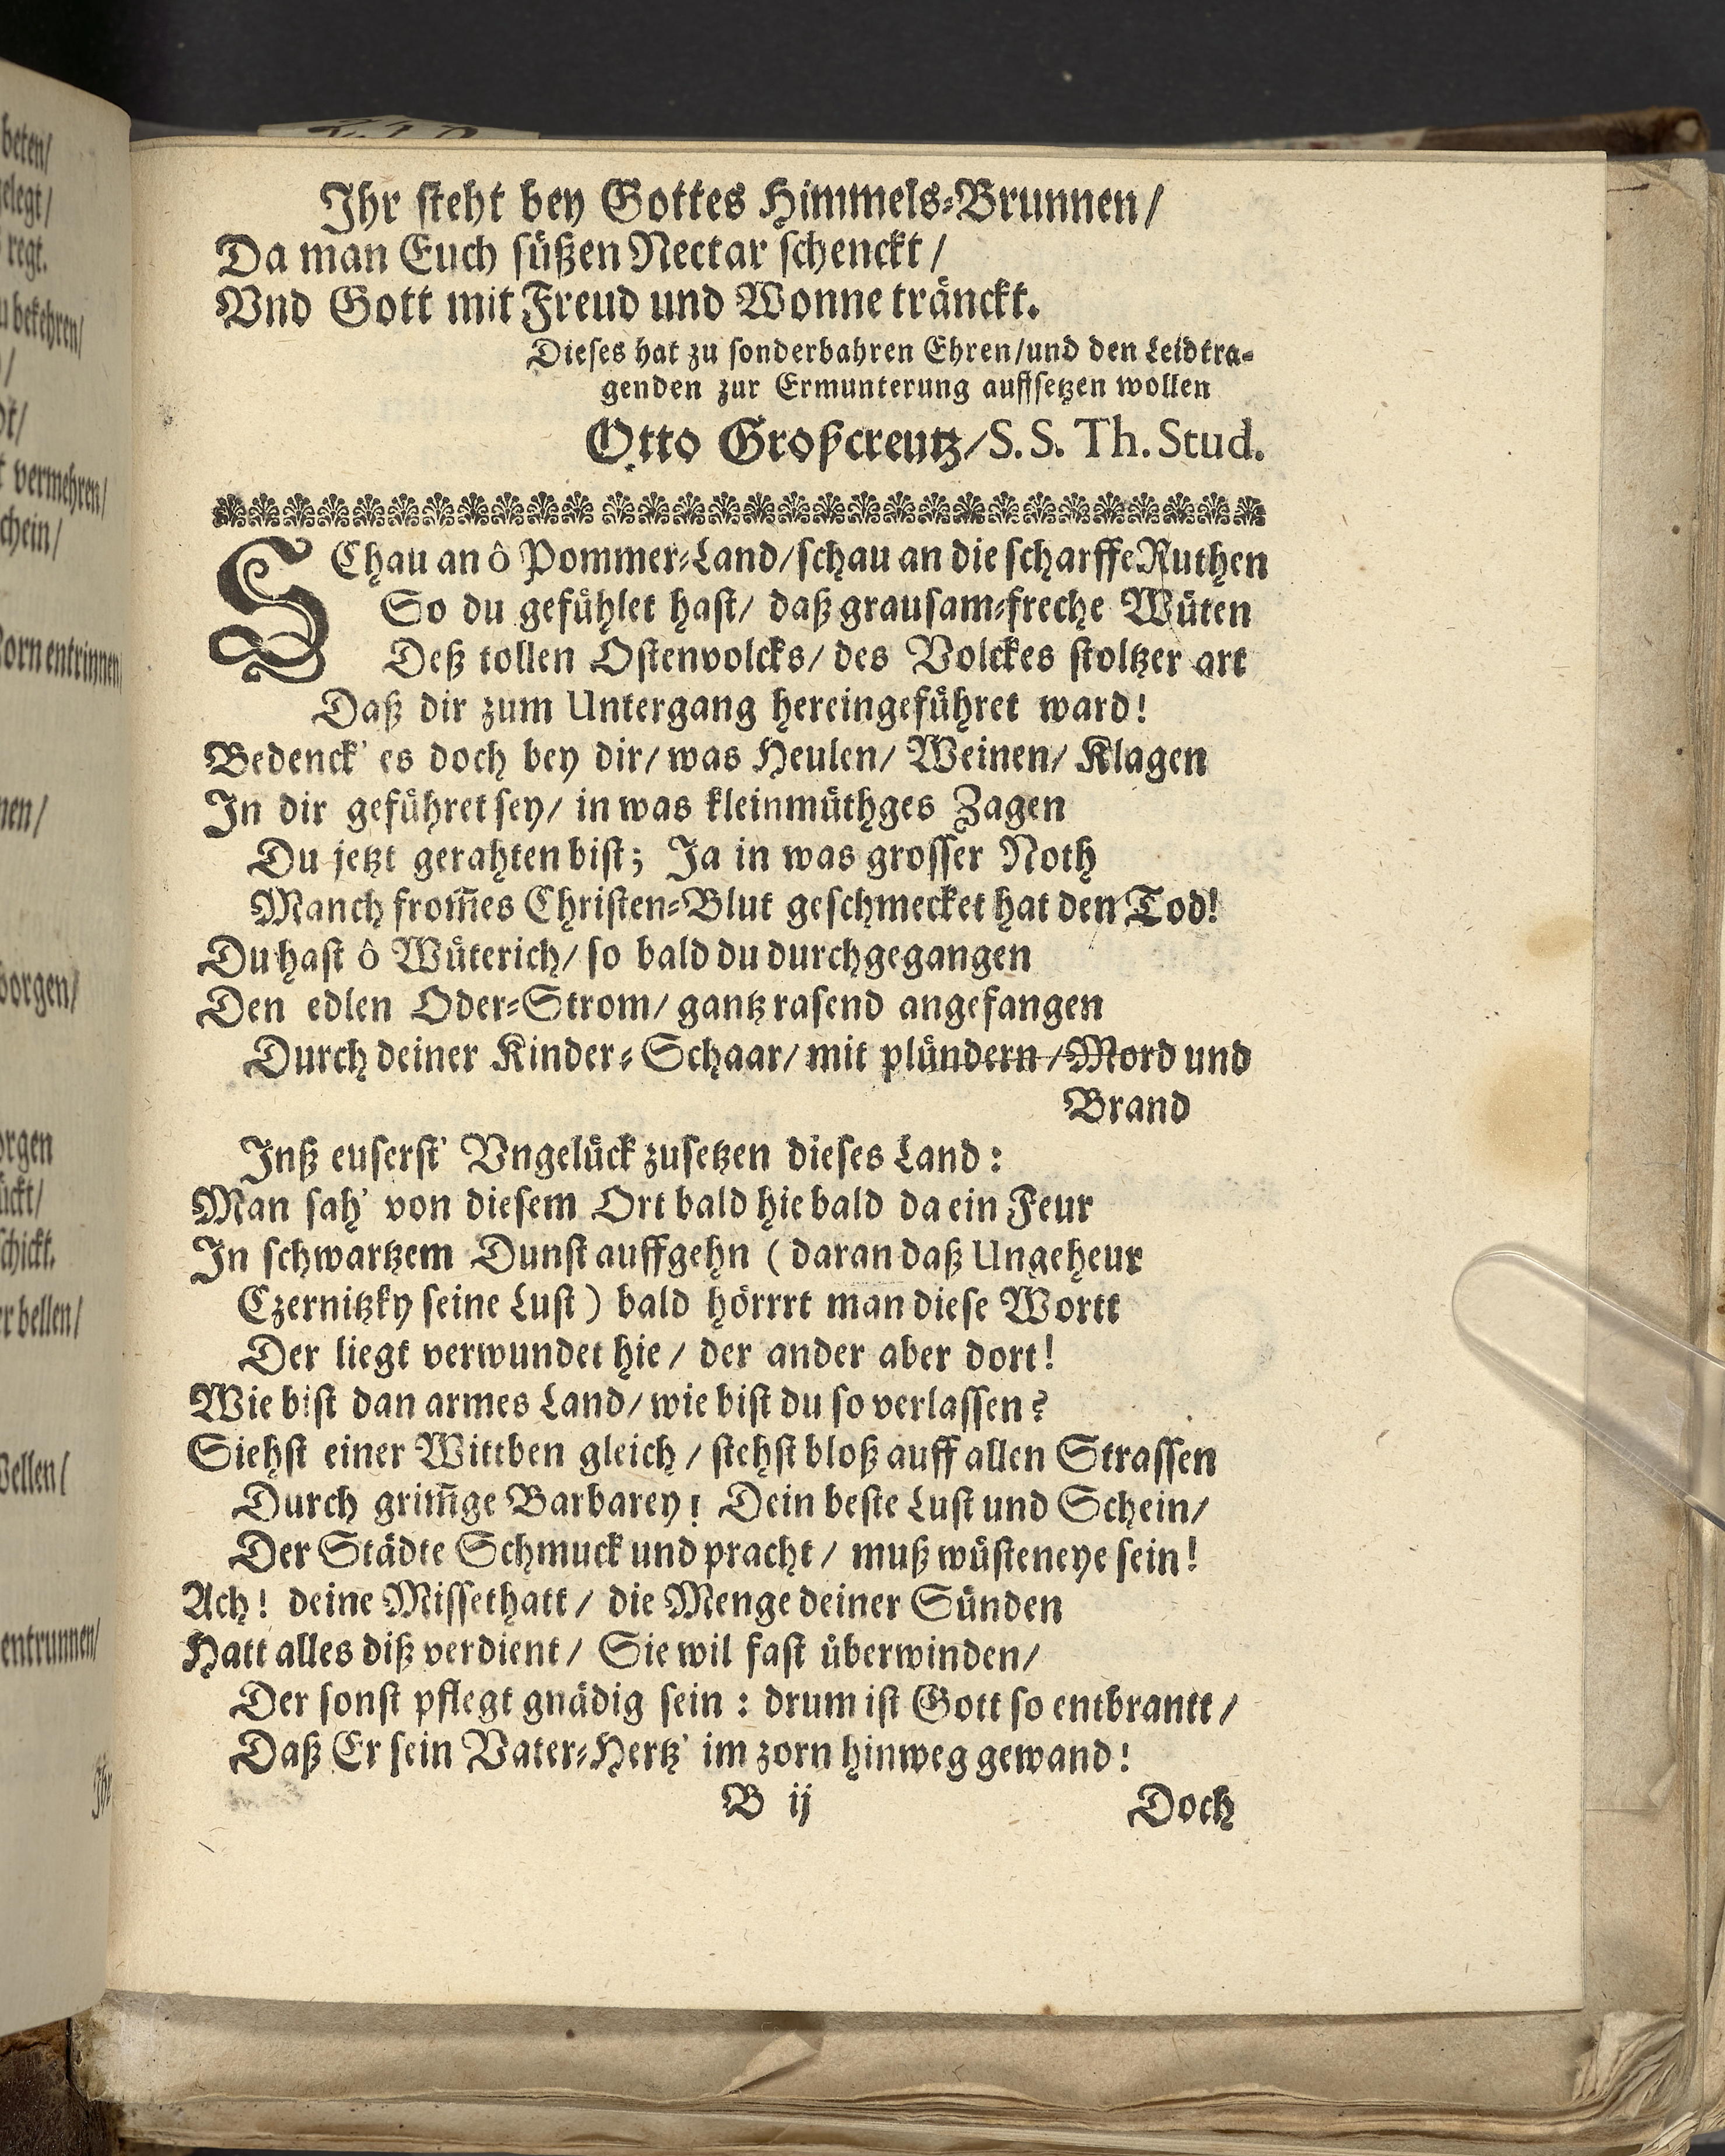 Ihr steht bey Gottes Himmels-Brunnen/
Da man Euch süßen Nectar schenckt/
Vnd Gott mit Freud und Wonne tränckt.
Dieses hat zu sonderbahren Ehren/und den Leidtra-
genden zur Ermunterung auffsetzen wollen
Otto Großcreutz/S. S. Th. Stud.
SChau an ô Pommer-Land/schau an die scharffe Ruthen
So du gefühlet hast/ daß grausam-freche Wüten
Deß tollen Ostenvolcks/ des Volckes stoltzer art
Daß dir zum Untergang hereingeführet ward!
Bedenck' es doch bey dir/ was Heulen/ Weinen/ Klagen
In dir geführet sey/ in was kleinmüthges Zagen
Du jetzt gerahten bist; Ja in was grosser Noth
Manch from̃es Christen-Blut geschmecket hat den Tod!
Du hast ô Wüterich/ so bald du durchgegangen
Den edlen Oder-Strom/ gantz rasend angefangen
Durch deiner Kinder-Schaar/ mit plündern/Mord und
Brand
Inß euserst' Vngelück zusetzen dieses Land:
Man sah' von diesem Ort bald hie bald da ein Feur
In schwartzem Dunst auffgehn (daran daß Ungeheur
Czernitzky seine Lust) bald hörrrt man diese Wortt
Der liegt verwundet hie/ der ander aber dort!
Wie bist dan armes Land/ wie bist du so verlassen?
Siehst einer Wittben gleich/ stehst bloß auff allen Strassen
Durch grim̃ge Barbarey! Dein beste Lust und Schein/
Der Städte Schmuck und pracht/ muß wüsteneye sein!
Ach! deine Missethatt/ die Menge deiner Sünden
Hatt alles diß verdient/ Sie wil fast überwinden/
Der sonst pflegt gnädig sein: drum ist Gott so entbrantt/
Daß Er sein Vater-Hertz' im zorn hinweg gewand!
B ij
Doch
beten/
vermehren/
entrunnen/